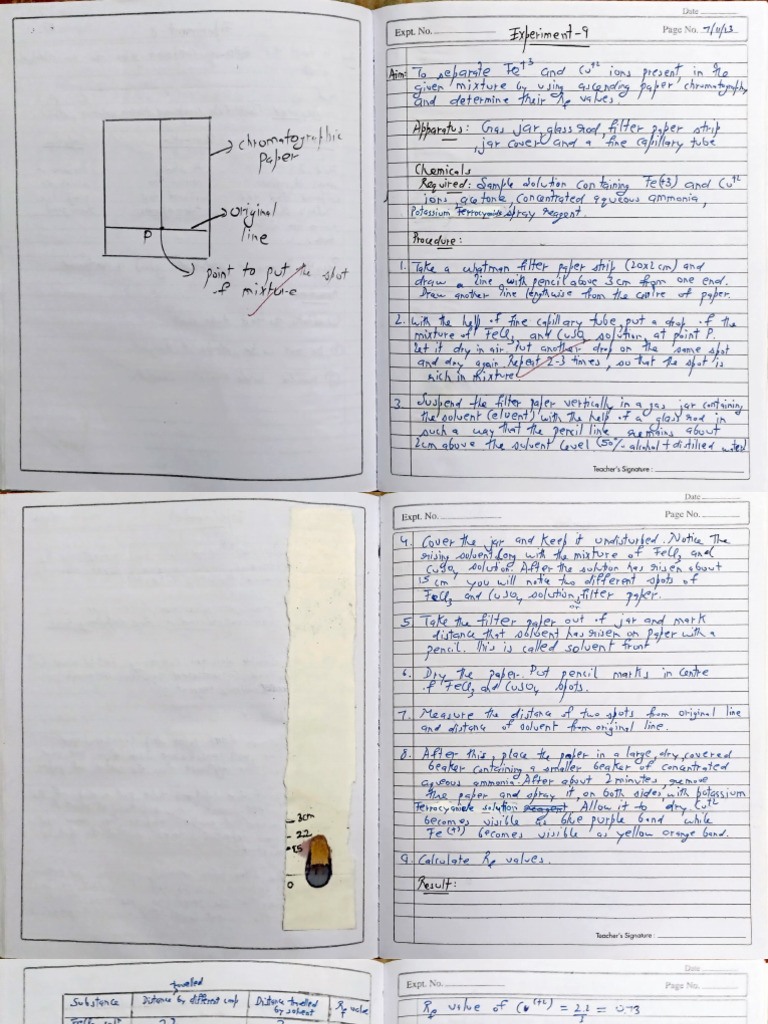 chromatographic
paper
original
line
P
point to put the spot
of mixture
Date
Expt. No.
Experiment-9
Page No. 7/11/23
Aim: To separate Fe+3 and Cu+2 ions present in the
given mixture by using ascending paper chromatography
and determine their Rf values.
Apparatus: Gas jar, glass rod, filter paper strip
, jar cover and a fine capillary tube
Chemicals
Required: Sample solution containing Fe(+3) and Cu+2
ions, acetone, concentrated aqueous ammonia,
Potassium Ferrocyanide spray reagent.
Procedure:
1. Take a whatman filter paper strip (20x2 cm) and
draw a line with pencil above 3 cm from one end.
Draw another line lengthwise from the centre of paper.
2. With the help of fine capillary tube, put a drop of the
mixture of FeCl3 and CuSO4 solution at point P.
Let it dry in air. Put another drop on the same spot
and dry again. Repeat 2-3 times, so that the spot is
rich in mixture.
3. Suspend the filter paper vertically in a gas jar containing
the solvent (eluent) with the help of a glass rod in
such a way that the pencil line remains about
2cm above the solvent level (50% alcohol + distilled water)
Teacher's Signature :
3cm
2.2
1.5
0
Date
Expt. No.
Page No.
4. Cover the jar and keep it undisturbed. Notice The
rising solvent long with the mixture of FeCl3 and
CuSO4 solution. After the solution has risen about
15 cm you will notice two different spots of
FeCl3 and CuSO4 solution on filter paper.
5 Take the filter paper out of jar and mark
distance that solvent has risen on paper with a
pencil. This is called solvent front
6. Dry the paper. Put pencil marks in centre
of FeCl3 and CuSO4 spots.
7. Measure the distance of two spots from original line
and distance of solvent from original line.
8. After this, place the paper in a large, dry, covered
beaker containing a smaller beaker of concentrated
aqueous ammonia. After about 2 minutes, remove
the paper and spray it, on both sides, with potassium
Ferrocyanide solution reagent. Allow it to dry. Cu+2
becomes visible as blue purple band while
Fe(+3) becomes visible as yellow orange band.
9. Calculate Rf values.
Result:
Teacher's Signature :
travelled
Substance Distance by different comp Distance travelled by solvent Rf value
Date
Expt. No.
Page No.
Rf value of Cu(+2) = 2.2/3 = 0.73